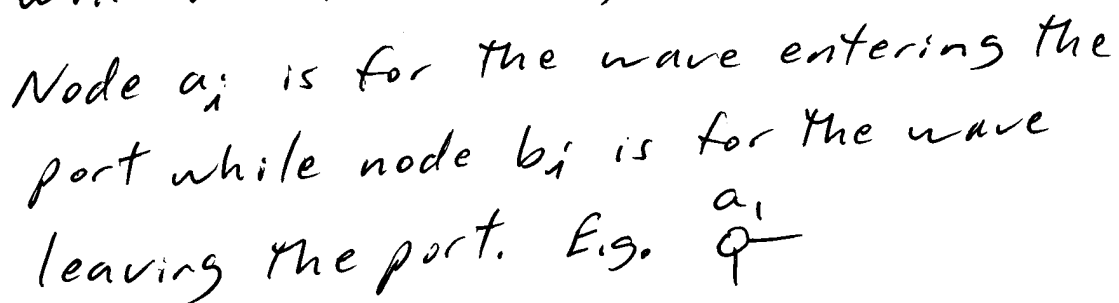 Node aᵢ is for the wave entering the
port while node bᵢ is for the wave
leaving the port. E.g. a₁